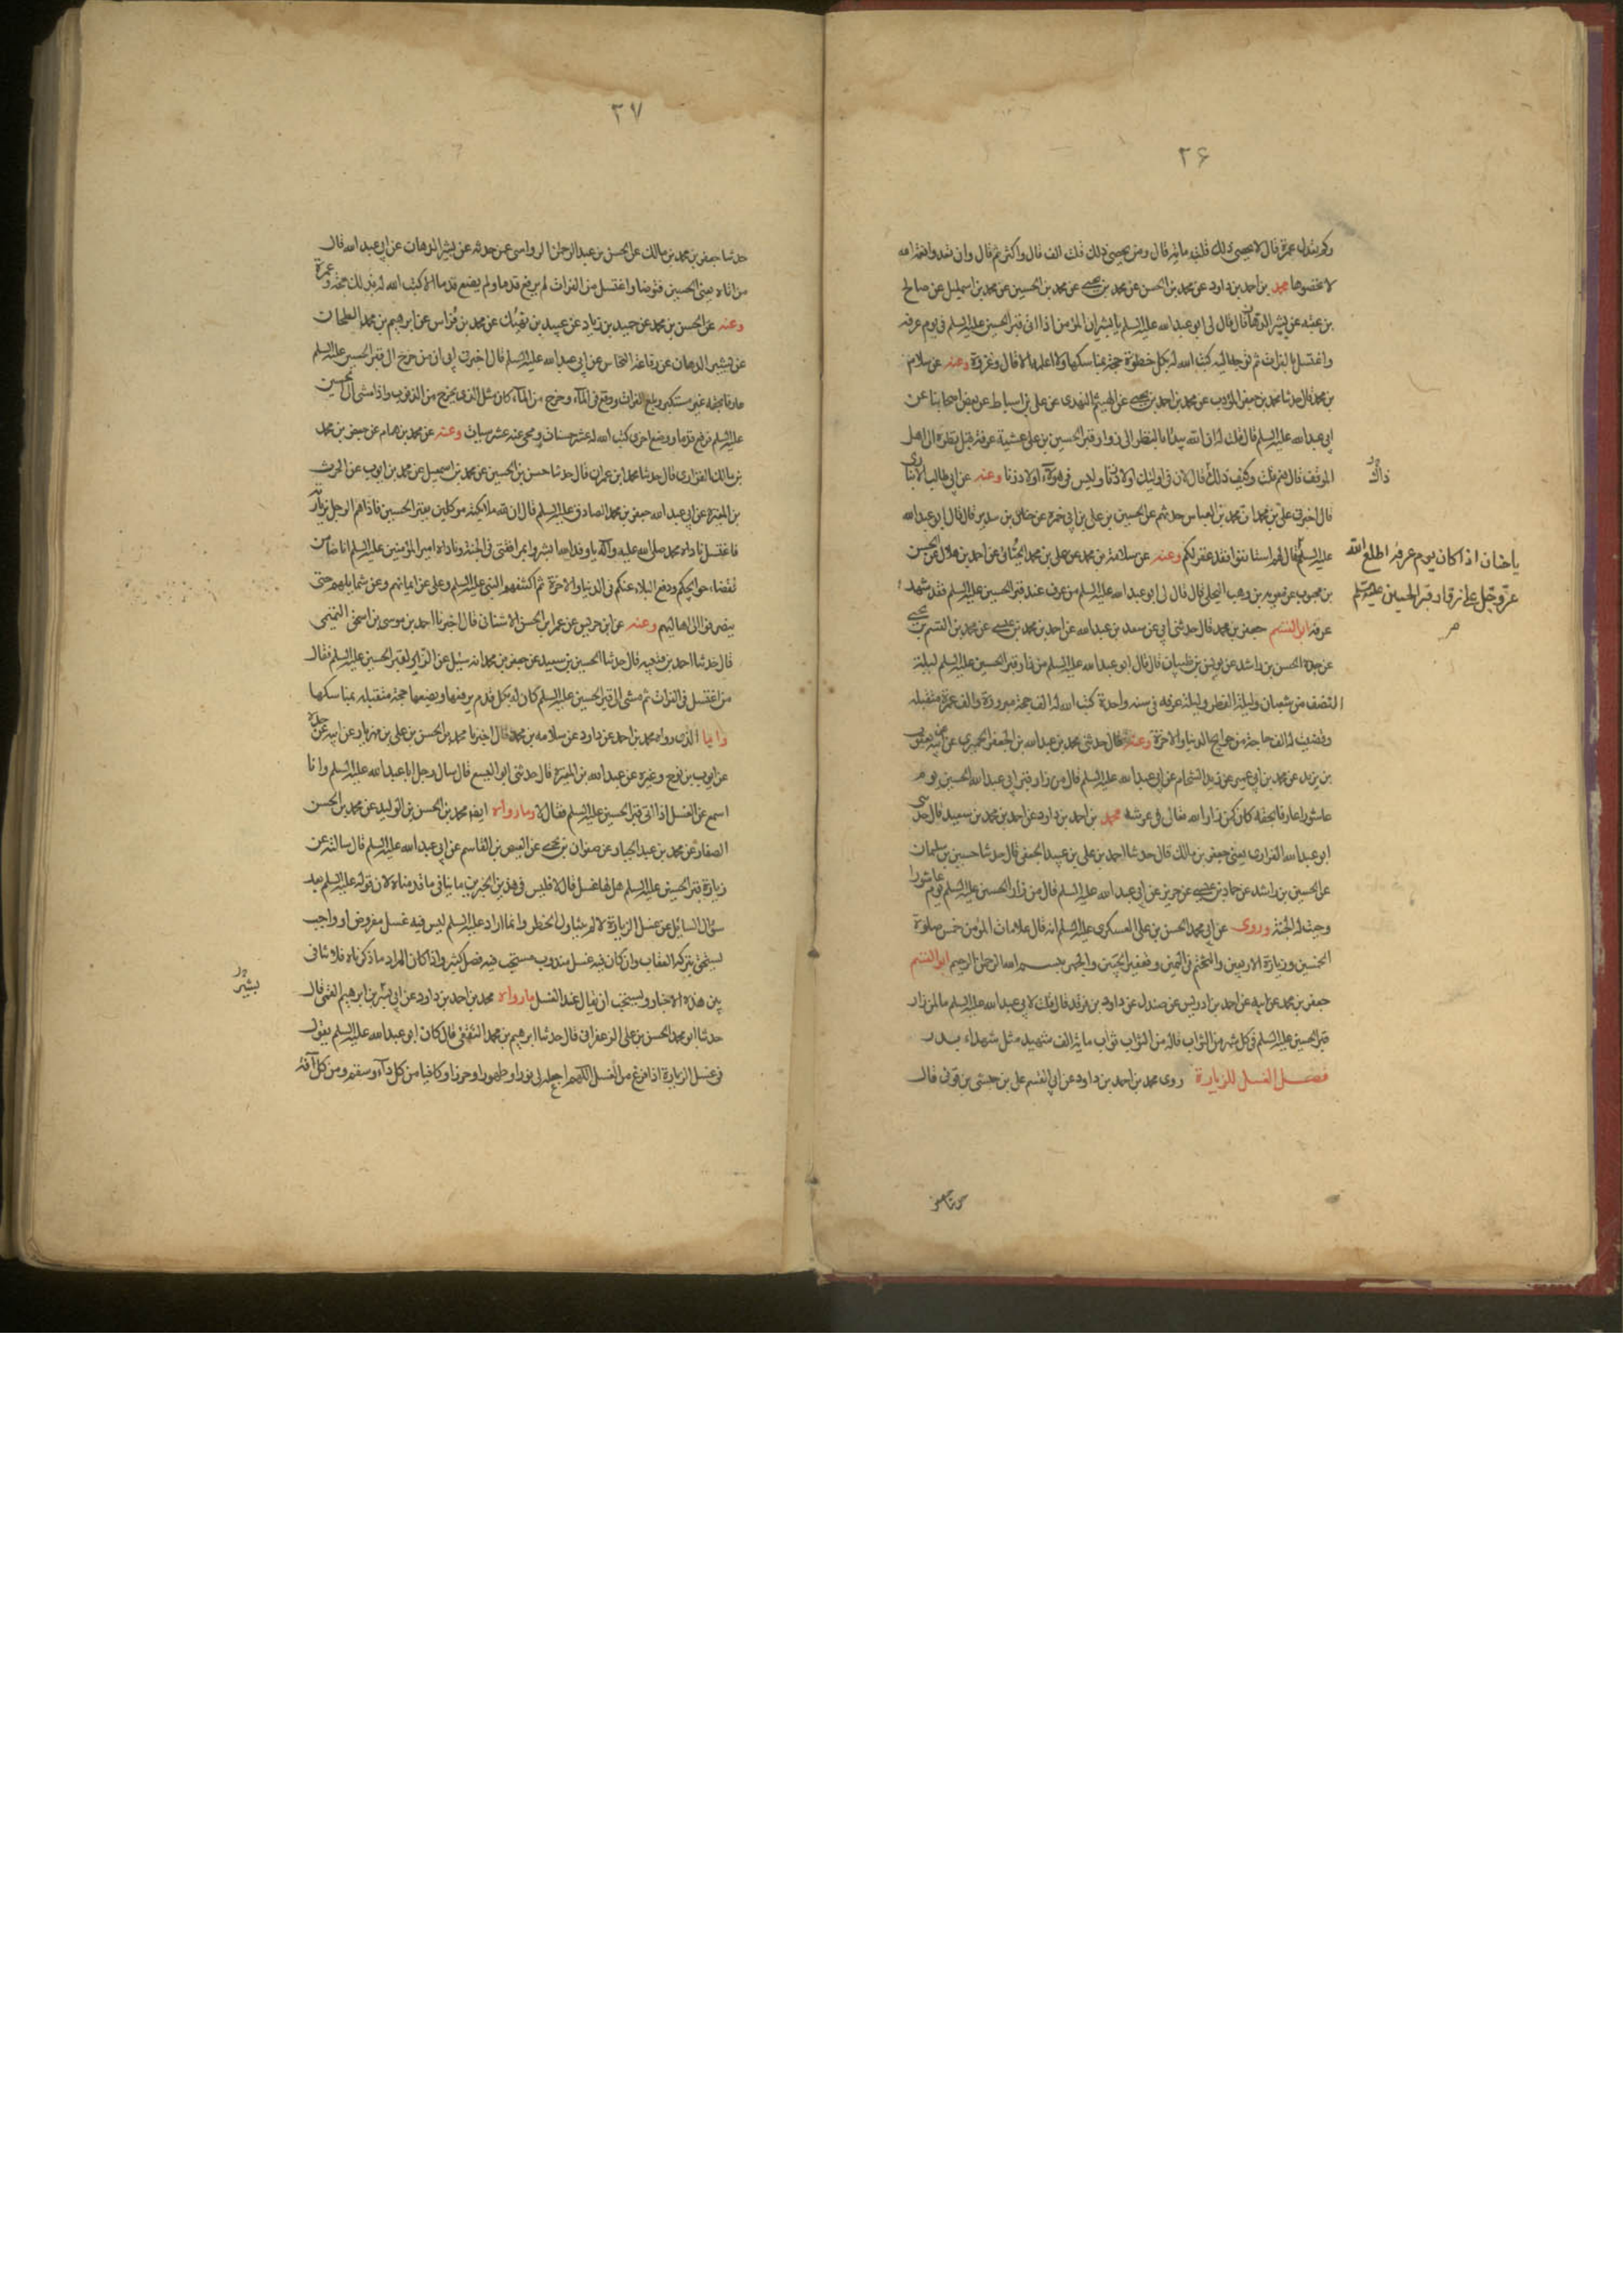 ۲۶
وكم تعدل عمرة قال لا يحصى ذلك قلت مائة قال ومن يحصى ذلك قلت الف قال واكثر ثم قال وان تعدوا نعمة الله
لا تحصوها محمد بن احمد بن داود عن محمد بن الحسن عن محمد بن يحيى عن محمد بن الحسين عن محمد بن اسمعيل عن صالح
بن عقبه عن بشير الدهان قال قال لى ابو عبد الله عليه السلم يا بشير ان المؤمن اذا اتى قبر الحسين عليه السلم فى يوم عرفه
واغتسل بالفرات ثم توجه اليه كتب الله له بكل خطوة حجة بمناسكها ولا اعلمه الا قال وغزوة وعنه عن سلامة
بن محمد قال حدثنا محمد بن جعفر المؤدب عن محمد بن احمد بن يحيى عن الهيثم النهدى عن على بن اسباط عن بعض اصحابنا عن
ابى عبد الله عليه السلم قال قلت له ان الله يبدأ بالنظر الى زوار قبر الحسين بن على عشية عرفة قبل نظره الى اهل
الموقف قال نعم قلت وكيف ذلك قال لان فى اولئك اولاد زنا وليس فى هؤلآء اولاد زنا وعنه عن ابى طالب الانبارى
ذاك
قال اخبرنى على بن محمد ان محمد بن العباس حدثهم عن الحسين بن على بن ابى حمزه عن حنان بن سدير قال قال ابو عبد الله
عليه السلم فقال لهم استانفوا فقد غفر لكم وعنه عن سلامة بن محمد عن على بن محمد الجبائى عن احمد بن هلال عن الحسن
يا حنان اذا كان يوم عرفة اطلع الله
عز وجل على زوار قبر الحسين عليه السلم
بن محبوب عن معويه بن وهب البجلى قال قال لى ابو عبد الله عليه السلم من عرف عند قبر الحسين عليه السلم فقد شهد
عرفه ابو القسم جعفر بن محمد قال حدثنى ابى عن سعد بن عبد الله عن احمد بن محمد بن عيسى عن محمد بن القسم بن يحيى
عن جده الحسن بن راشد عن يونس بن ظبيان قال قال ابو عبد الله عليه السلم من زار قبر الحسين عليه السلم ليلة
النصف من شعبان وليلة الفطر وليلة عرفه فى سنه واحدة كتب الله له الف حجة مبرورة والف عمرة متقبله
وقضيت له الف حاجة من حوائج الدنيا والاخرة وعنه قال حدثنى محمد بن عبد الله بن جعفر الحميرى عن ابيه عن يعقوب
بن يزيد عن محمد بن ابى عمير عن زيد الشحام عن ابى عبد الله عليه السلم قال من زار قبر ابى عبد الله الحسين يوم
عاشورا عارفا بحقه كان كمن زار الله تعالى فى عرشه محمد بن احمد بن داود عن احمد بن محمد بن سعيد قال حدثنى
ابو عبد الله الفزارى يعنى جعفر بن مالك قال حدثنا احمد بن على بن عبيد الجعفى قال حدثنا حسين بن سليمان
عن الحسين بن راشد عن حماد بن عيسى عن حريز عن ابى عبد الله عليه السلم قال من زار الحسين عليه السلم يوم عاشورا
وجبت له الجنة وروى عن ابى محمد الحسن بن على العسكرى عليه السلم انه قال علامات المؤمن خمس صلوة
الخمسين وزيارة الاربعين والتختم فى اليمين وتعفير الجبين والجهر ببسم الله الرحمن الرحيم ابو القسم
جعفر بن محمد عن ابيه عن احمد بن ادريس عن صندل عن داود بن فرقد قال قلت لابى عبد الله عليه السلم ما لمن زار
قبر الحسين عليه السلم فى كل شهر من الثواب قال له من الثواب ثواب ماية الف شهيد مثل شهداء بدر
فصل الغسل للزيارة روى محمد بن احمد بن داود عن ابى القسم على بن حبشى بن قونى قال
۳۷
حدثنا جعفر بن محمد بن مالك عن الحسن بن عبد الرحمن الرواسى عمن حدثه عن بشير الدهان عن ابى عبد الله قال
من اتاه يعنى الحسين فتوضا واغتسل من الفرات لم يرفع قدما ولم يضع قدما الا كتب الله له بذلك حجة وعمرة
وعنه عن الحسن بن محمد عن حميد بن زياد عن عبيد بن نهيك عن محمد بن فراس عن ابرهيم بن محمد الطحان
عن بشير الدهان عن رفاعة النخاس عن ابى عبد الله عليه السلم قال اخبرنى ابى ان من خرج الى قبر الحسين عليه السلم
عارفا بحقه غير مستكبر وبلغ الفرات ووقع فى المآء وخرج من المآء كان مثل الذى يخرج من الذنوب واذا مشى الى الحسين
عليه السلم فرفع قدما ووضع اخرى كتب الله له عشر حسنات ومحى عنه عشر سيئات وعنه عن محمد بن همام عن جعفر بن محمد
بن مالك الفزارى قال حدثنا محمد بن عمران قال حدثنا حسن بن الحسين عن محمد بن اسمعيل عن محمد بن ايوب عن الحرث
بن المغيرة عن ابى عبد الله جعفر بن محمد الصادق عليه السلم قال ان لله ملائكة موكلين بقبر الحسين فاذا هم الرجل بزيارته
فاغتسل ناداه محمد صلى الله عليه وآله يا وفد الله ابشروا بمرافقتى فى الجنة وناداه امير المؤمنين عليه السلم انا ضامن
لقضاء حوائجكم ودفع البلاء عنكم فى الدنيا والاخرة ثم اكتنفهم النبى عليه السلم وعلى عن ايمانهم وعن شمايلهم حتى
ينصرفوا الى اهاليهم وعنه عن ابن حريس عن عمر ابن الحسن الاشنانى قال اخبرنا احمد بن موسى بن اسحق التميمى
قال حدثنا احمد بن قتيبه قال حدثنا الحسين بن سعيد عن جعفر بن محمد انه سئل عن الزاير لقبر الحسين عليه السلم فقال
من اغتسل فى الفرات ثم مشى الى قبر الحسين عليه السلم كان له بكل قدم يرفعها ويضعها حجة متقبله بمناسكها
واما الذى رواه محمد بن احمد عن داود عن سلامه بن محمد قال اخبرنا محمد بن الحسن بن على بن مهزيار عن ابيه عن جده
عن ايوب بن نوح وغيره عن عبد الله بن المغيرة قال حدثنى ابو اليسع قال سال رجل ابا عبد الله عليه السلم وانا
اسمع عن الغسل اذا اتى قبر الحسين عليه السلم فقال لا وما رواه ايضا محمد بن الحسن بن الوليد عن محمد بن الحسن
الصفار عن محمد بن عبد الجبار عن صفوان بن يحيى عن العيص بن القاسم عن ابى عبد الله عليه السلم قال سالته عن
زيارة قبر الحسين عليه السلم هل لها غسل قال لا فليس فى هذين الخبرين ما ينافى ما قدمناه لان قوله عليه السلم بعد
سؤال السائل عن غسل الزيارة لا لم يتناول الحظر وانما اراد عليه السلم ليس فيه غسل مفروض او واجب
يستحق بتركه العقاب وان كان فيه غسل مندوب مستحب فيه فضل كثير واذا كان المراد ما ذكرناه فلا تنافى
بين هذه الاخبار ويستحب ان يقال عند الغسل ما رواه محمد بن احمد بن داود عن ابى بشر بن ابرهيم القمى قال
بشير
حدثنا ابو محمد الحسن بن على الزعفرانى قال حدثنا ابرهيم بن محمد الثقفى قال كان ابو عبد الله عليه السلم يقول
فى غسل الزيارة اذا فرغ من الغسل اللهم اجعله لى نورا وطهورا وحرزا وكافيا من كل دآء وسقم ومن كل آفة